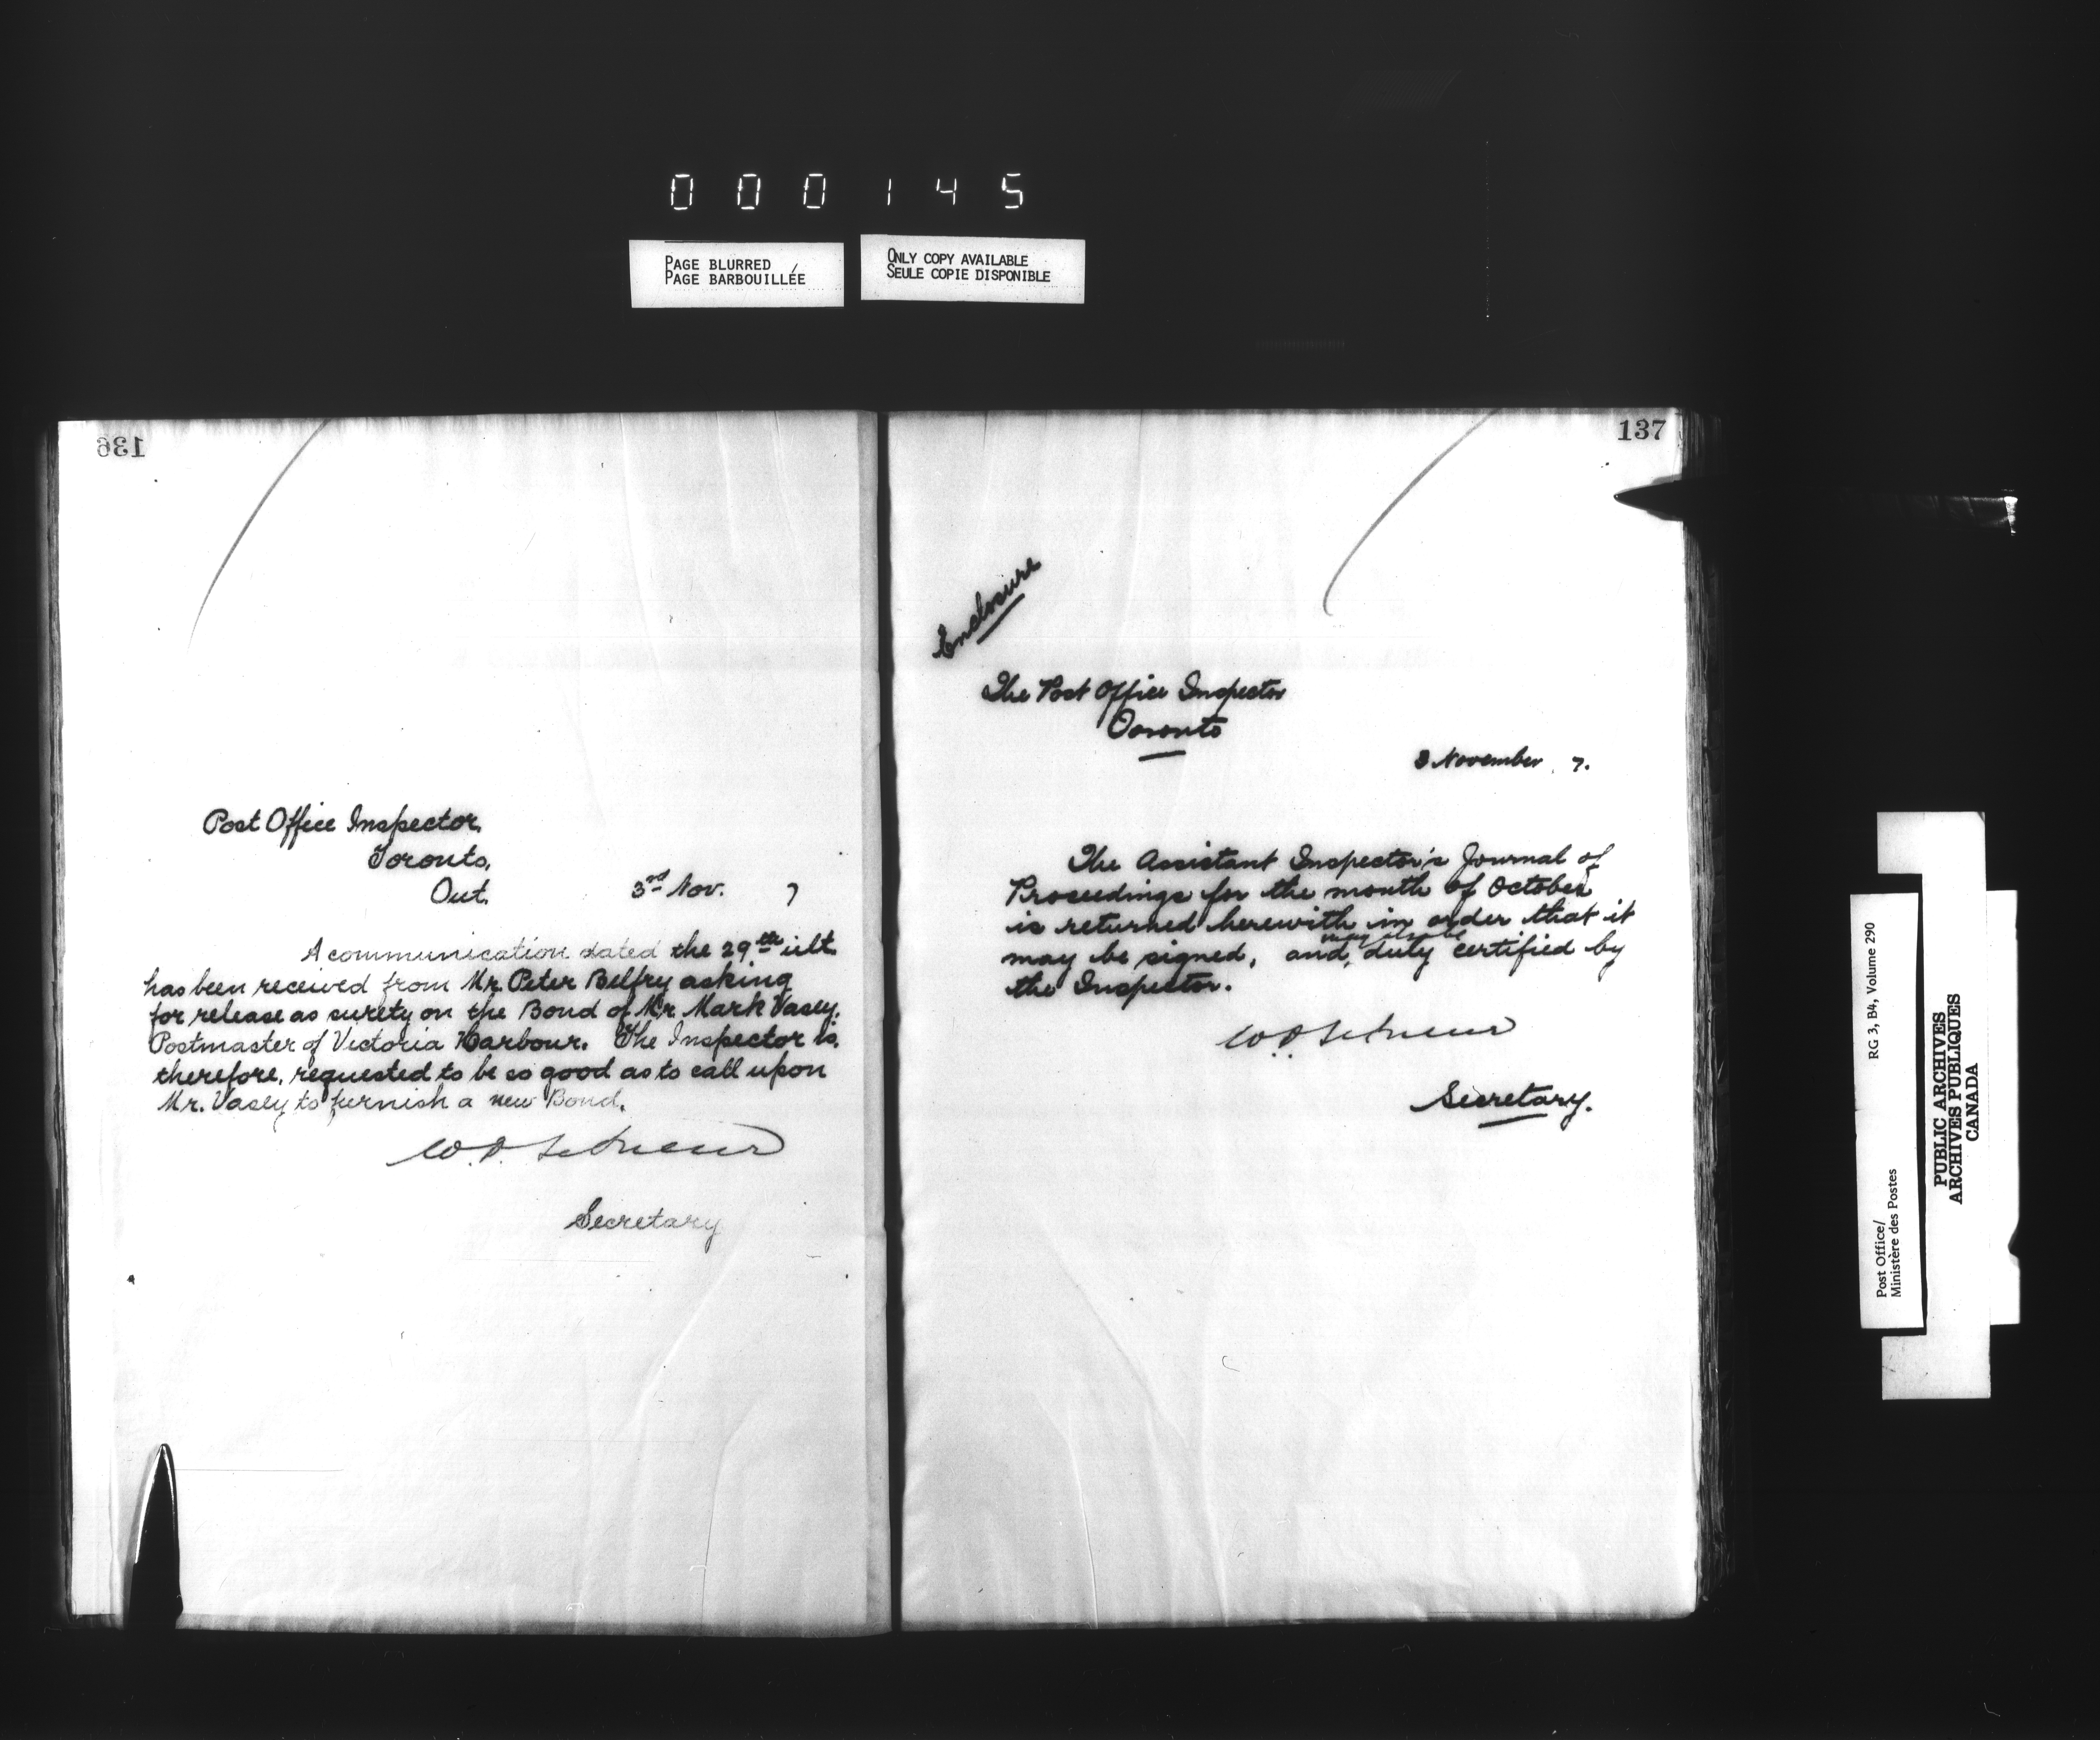 000145
PAGE BLURRED
PAGE BARBOUILLÉE
ONLY COPY AVAILABLE
SEULE COPIE DISPONIBLE
136
Post Office Inspector,
Toronto,
Ont.
3rd Nov. 7
A communication dated the 29th ult.
has been received from Mr. Peter Belfry asking
for release as surety on the Bond of Mr. Mark Vasey,
Postmaster of Victoria Harbour. The Inspector is,
therefore, requested to be so good as to call upon
Mr. Vasey to furnish a new Bond.
W.D. LeSueur
Secretary
137
Enclosure
The Post Office Inspector
Toronto
3 November 7.
The Assistant Inspector's Journal of
Proceedings for the month of October
is returned herewith in order that it
may also be
may be signed, and, duly certified by
the Inspector.
W.D. LeSueur
Secretary.
Post Office/
Ministère des Postes
RG 3, B4, Volume 290
PUBLIC ARCHIVES
ARCHIVES PUBLIQUES
CANADA